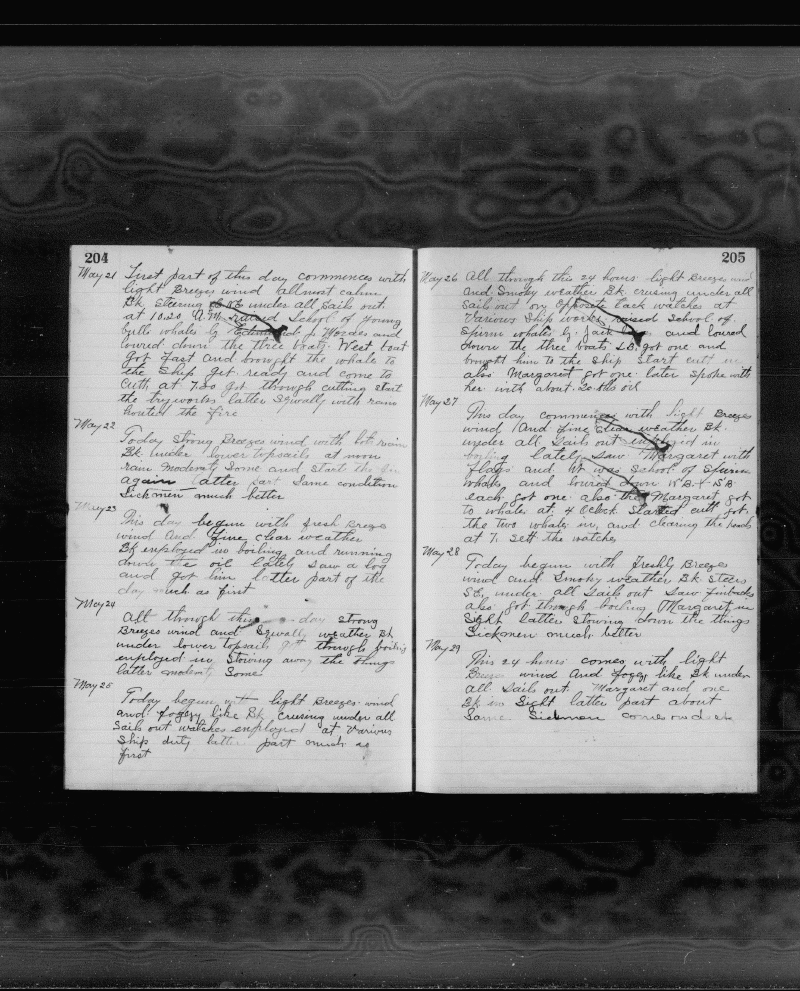 204
May 21 First part of this day commences with
light Breezes wind allmost calm
Bk Steering under all Sails out
at 10.20 A.M. raised School of young
bulls whales by J. Moraes and
loured down the three boats West boat
got fast and brought the whale to
the Ship get ready and come to
Cutt, at 7.30 got through cutting start
the tryworks latter Squally with rain
houted the fire
May 22
Today Strong Breezes wind with lots rain
Bk. under lower topsails at noon
rain Moderat, Some and start the fire
again latter part Same condition
Sickmen much better
May 23
This day begun with fresh Breeze
wind And fine clear weather
Bk employed in boiling and running
down the oil lately Saw a log
and got him latter part of the
day much as first
May 24
All through this day Strong
Breezes wind and Squally weather Bk
under lower topsails got through boiling
employed in Stowing away the things
latter moderat, Some
May 25
Today begun with light Breezes wind
and foggy like Bk cruising under all
Sails out watches employed at various
Ship duty latter part much as
first
205
May 26 All through this 24 hours light Breezes wind
and Smoky weather Bk. crusing under all
Sails out on Opposite tack watches at
Various Ship works, raised School of
Spurm whales by Jack and loured
down the three boats LB. got one and
brought him to the Ship Start cutt in
also Margaret got one later Spoke with
her with about 20 bls oil
May 27
This day commences with light Breezes
wind And fine clear weather Bk.
under all Sails out employed in
boiling lately Saw Margaret with
flags and it was School of Spurm
whale and loured down
each got one also the Margaret got
to whales at, 4 Oclock Started cutt, got
the two whales in, and clearing the heads
at 7. Sett the watches
May 28
Today begun with freshly Breezes
wind and Smoky weather Bk Steers
SE, under all Sails out Saw finbacks
also got through boiling Margaret in
Sight latter Stowing down the things
Sickmen much better
May 29
This 24 hours comes with light
Breezes wind And foggy like Bk under
all Sails out Margaret and one
Bk in Sight latter part about
Same Sickmen